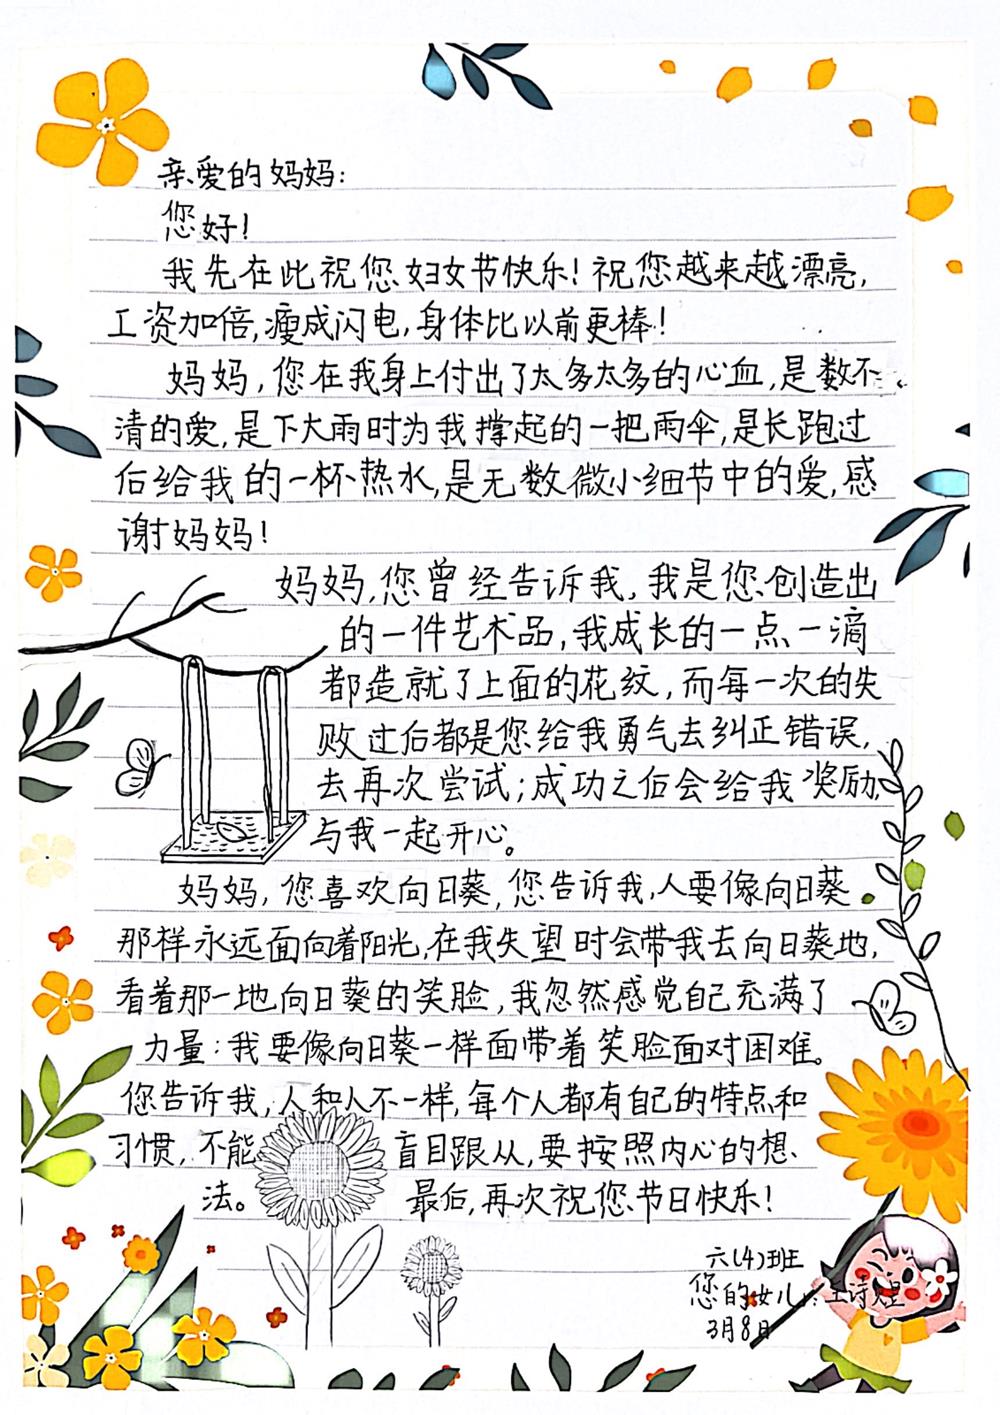 亲爱的妈妈:
您好!
我先在此祝您妇女节快乐!祝您越来越漂亮,
工资加倍,瘦成闪电,身体比以前更棒!
妈妈,您在我身上付出了太多太多的心血,是数不
清的爱,是下大雨时为我撑起的一把雨伞,是长跑过
后给我的一杯热水,是无数微小细节中的爱,感
谢妈妈!
妈妈,您曾经告诉我,我是您创造出
的一件艺术品,我成长的一点一滴
都造就了上面的花纹,而每一次的失
败过后都是您给我勇气去纠正错误,
去再次尝试;成功之后会给我奖励,
与我一起开心。
妈妈,您喜欢向日葵,您告诉我,人要像向日葵
那样永远面向着阳光,在我失望时会带我去向日葵地,
看着那一地向日葵的笑脸,我忽然感觉自己充满了
力量:我要像向日葵一样面带着笑脸面对困难。
您告诉我,人和人不一样,每个人都有自己的特点和
习惯,不能盲目跟从,要按照内心的想
法。最后,再次祝您节日快乐!
六(4)班
您的女儿:王诗煌
3月8日